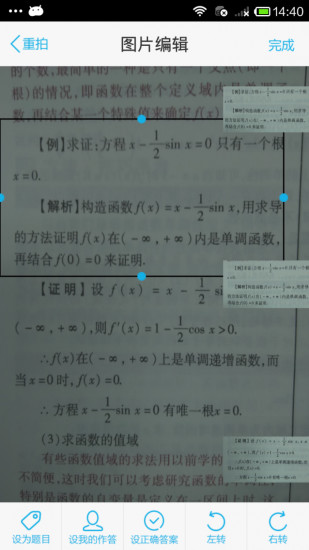 14:40
重拍
图片编辑
完成
的个数,最简单的一种是只有一个交点(即一
根)的情况,即函数在整个定义域内是单调函
数,再结合某一个特殊值来确定f(x)
【例】求证:方程 x-1/2 sin x=0 只有一个根
x=0.
【解析】构造函数f(x)=x-1/2 sin x,用求导
的方法证明f(x)在(-∞,+∞)内是单调函数,
再结合f(0)=0来证明.
【证明】设 f(x) = x - 1/2 si
(-∞,+∞),则f′(x)=1-1/2 cos x>0.
∴f(x)在(-∞,+∞)上是单调递增函数,而
当x=0时,f(x)=0.
∴方程 x-1/2 sin x=0有唯一根x=0.
(3)求函数的值域
有些函数值域的求法用以前学的
不简便,这时我们可以考虑研究函数的
特别是函数的自变量是定义在一区间上时,这
设为题目
设我的作答
设正确答案
左转
右转